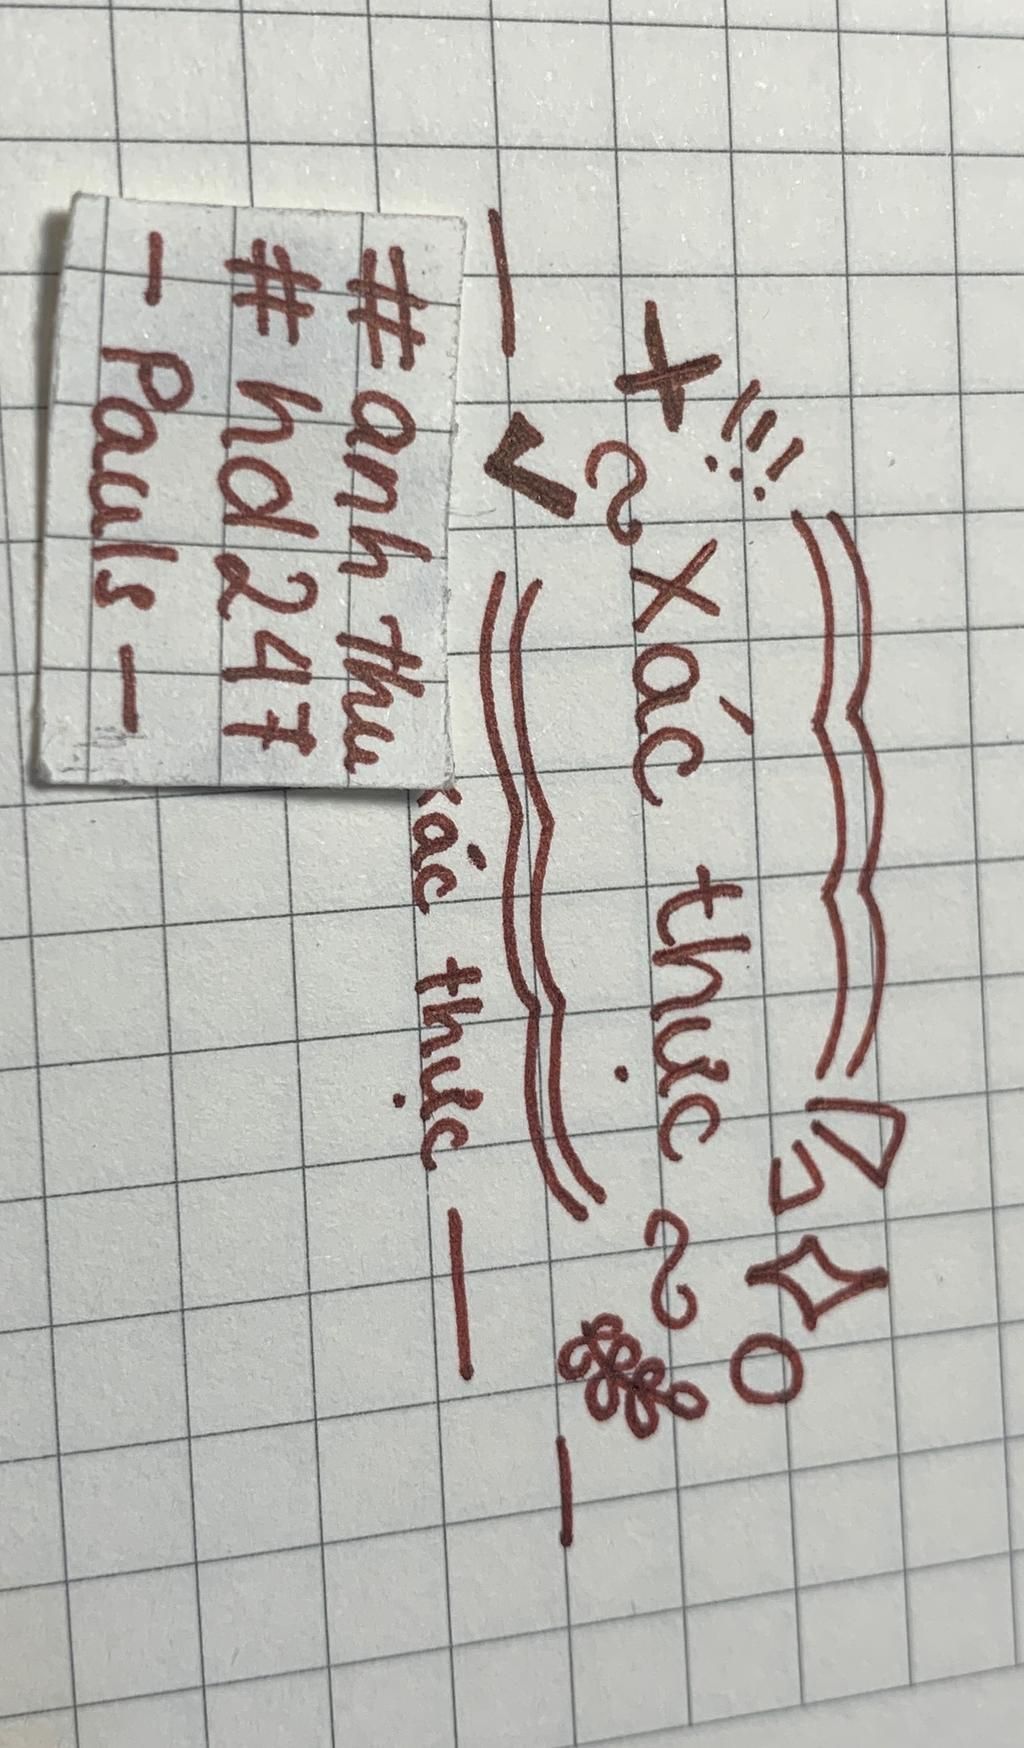 !!!
~ xác thực ~
xác thực —
#anh thu
#hd247
- Pauls -